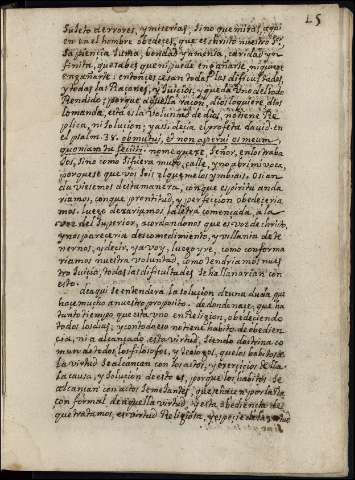 15
sujeto a errores, y miserias: Sino que miras, aqui
en un el hombre obedeces, que es christo nuestro Sr.
Sapiencia Suma, bondad ynmensa, caridad yn-
finita, que sabes que ni puede engañarte, ni quiere
engañarte: entonces cesan todas las dificultades,
y todas las Raçones, y Juicios, y queda uno del todo
Rendido; porque aquella raçon, dios lo quiere, dios
lo manda, esta es la Voluntad de dios, no tiene Re-
plica, ni Solucion; y assi decia el profeta david en
el psalm. 38. obmutui, et non aperui os meum
quoniam tu fecisti: no me quexe, Señor, en los traba
Jos, sino como si fuera mudo, calle, y no abri mi voca,
porque se que vos sois el que me los ymbiais. O si an
duviesemos desta manera, con que espiritu anda
riamos, con que prontitud, y perfeccion obedeceria
mos. luego dexariamos la letra començada, a la
voz del Superior, acordandonos que es voz de christo,
y nos pareceria descomedimiento, y villania dete
nernos, y decir, ya voy, luego yre, como conforma
riamos nuestra voluntad, como tendriamos nues
tro Juicio, todas las dificultades se hallanarian con
esto.
de aqui se entendera la solucion de una duda que
hace mucho a nuestro proposito. de donde nace, que ha
tanto tiempo que esta uno en Religion, obedeciendo
todos los dias, y con todo eso no tiene habito de obedien
cia, ni a alcançado esta virtud. Siendo doctrina co
mun de todos los filosofos, y teologos, que los habitos de
la virtud se alcançan con los actos, y exercicio de ella
la causa, y Solucion de esto es, porque los habitos se
alcançan con actos Semejantes, que se haçen por la Ra
çon formal de aquella virtud, y esta obediencia de
que tratamos, es virtud Religiosa, y especie de la virtud